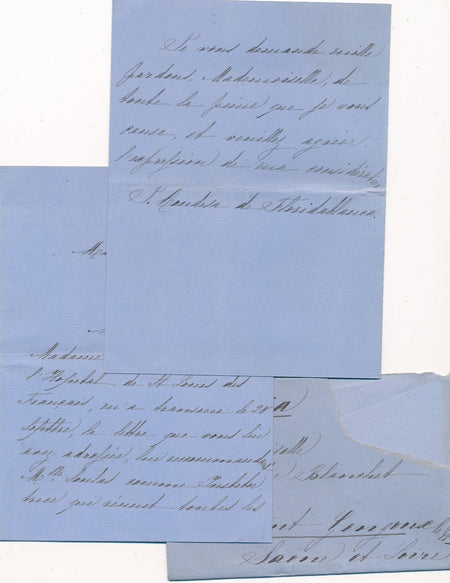 Je vous demande mille
pardons, Mademoiselle, de
toute la peine que je vous
cause, et veuillez agréer
l'expression de ma considération
Ma
Madame
l'Hôpital de St Louis des
Français, m'a transmis le 28
la lettre que vous lui
avez adressée, lui recommandant
Mlle comme Institu
trice qui réunit toutes les
selle
Blanchet
Gengoux
Saône et Loire